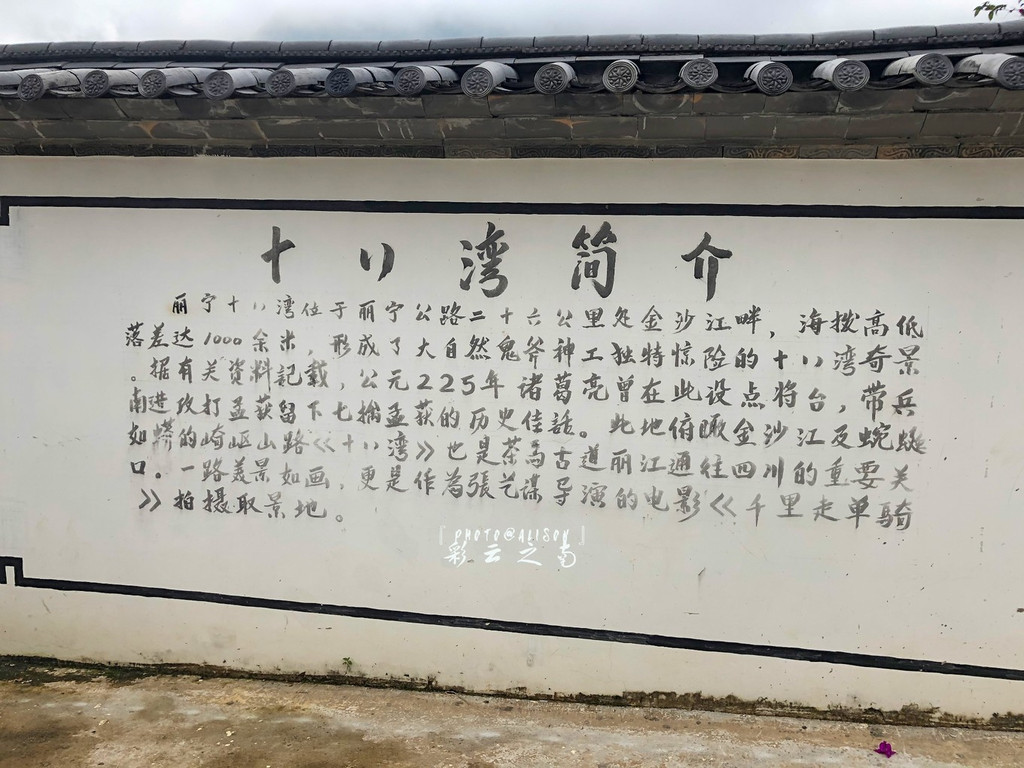 十八湾简介
丽宁十八湾位于丽宁公路二十六公里处金沙江畔，海拨高低
落差达1000余米，形成了大自然鬼斧神工独特惊险的十八湾奇景
。据有关资料記载，公元225年诸葛亮曾在此设点将台，带兵
南进攻打孟获留下七擒孟获的历史佳話。此地俯瞰金沙江及蜿蜒
如蟒的崎岖山路《十八湾》也是茶馬古道丽江通往四川的重要关
口。一路美景如画，更是作為張艺谋导演的电影《千里走单騎
》拍摄取景地。
『PHOTO@ALISON』
彩云之南